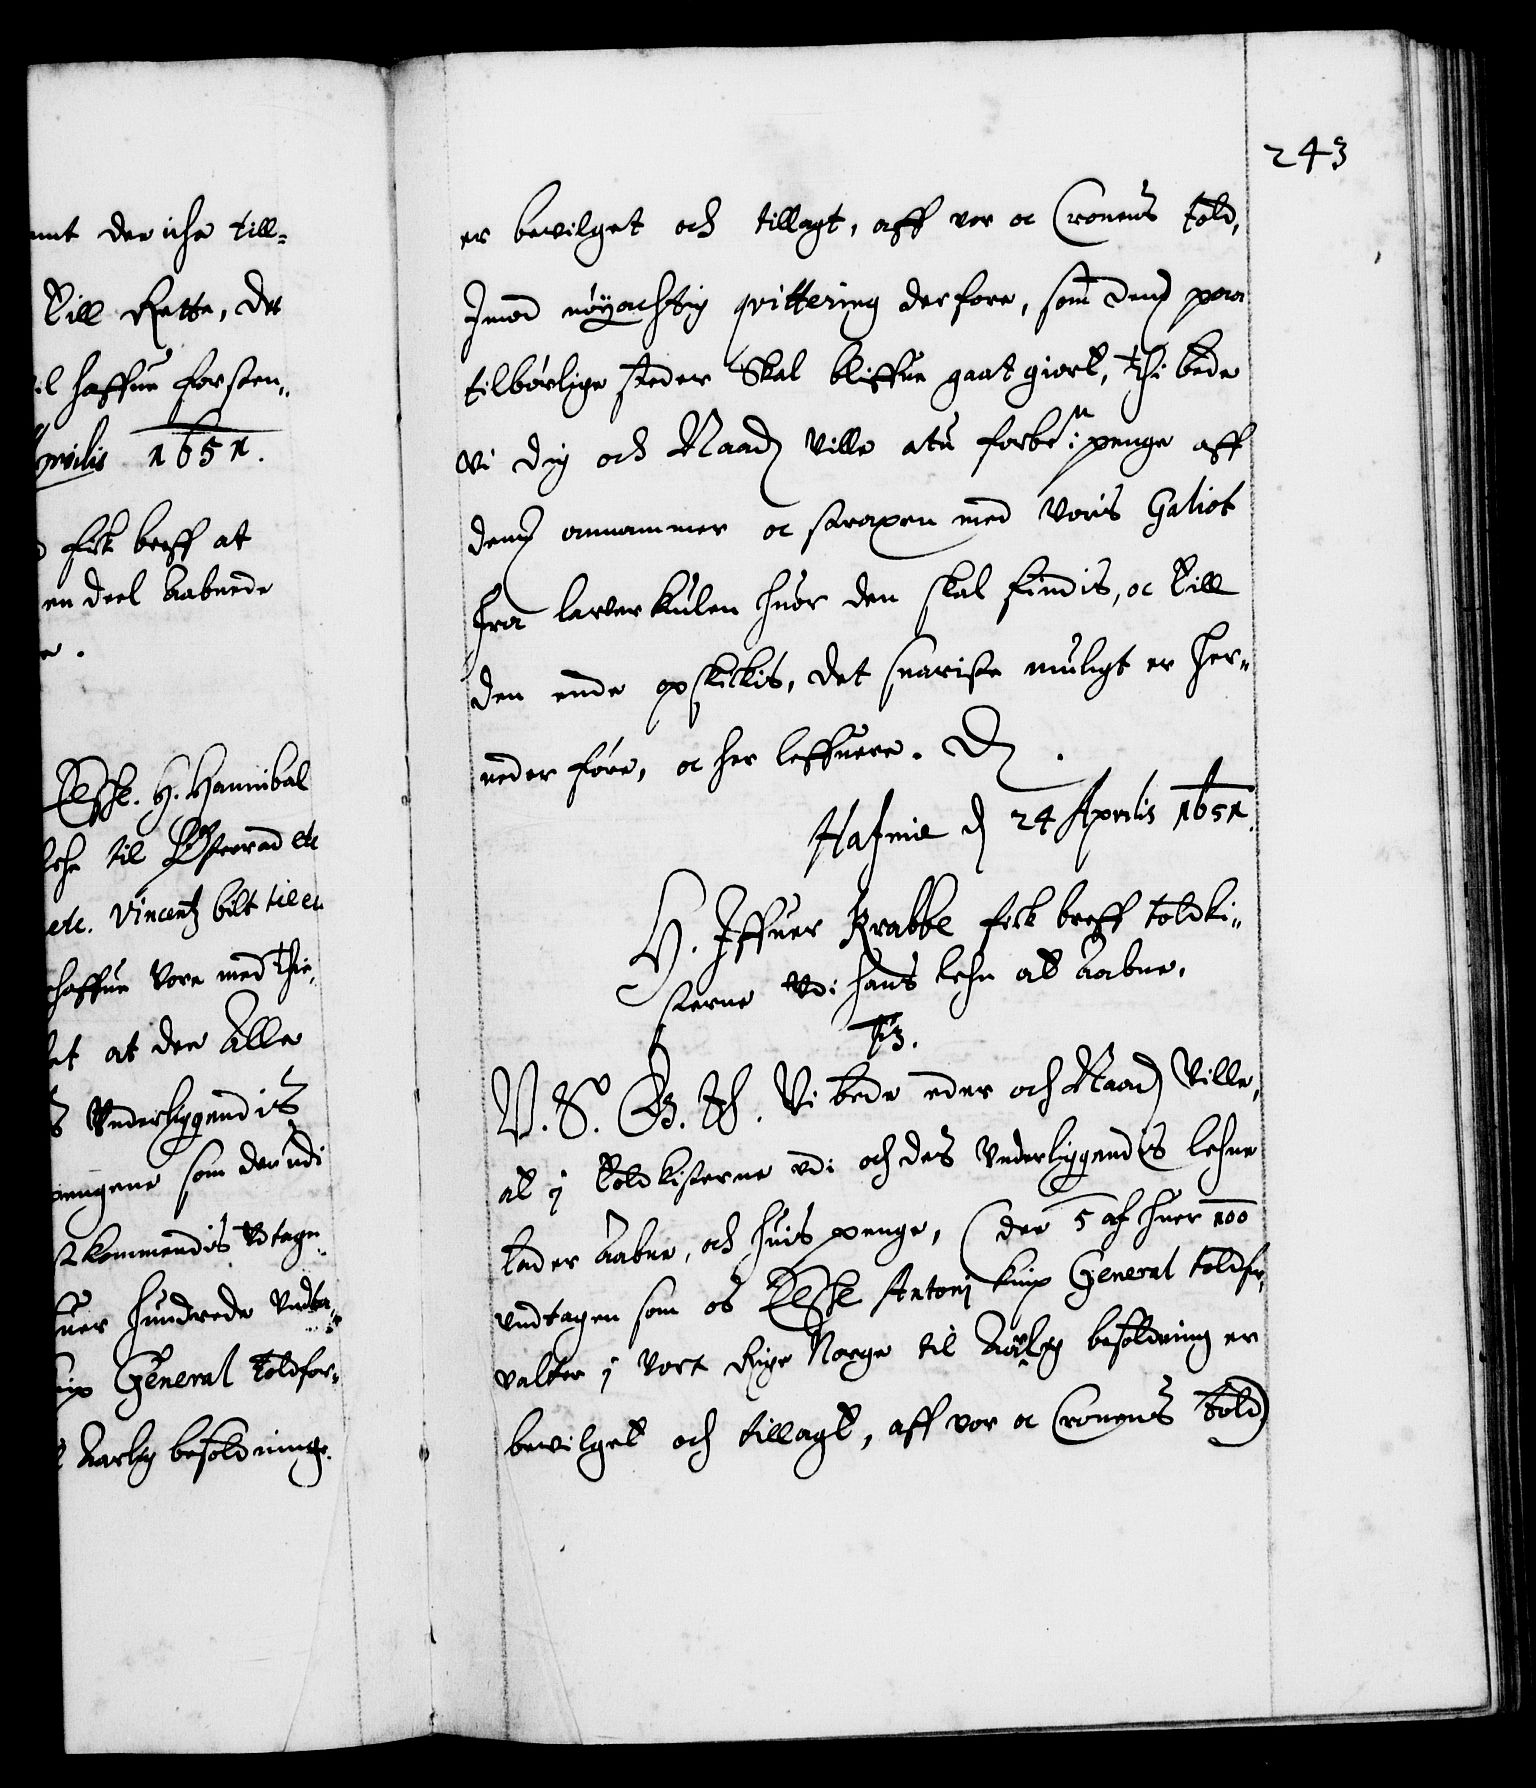 243
ent der iche till-
till Rette, det
il haffue forsten-
Aprilis 1651.
fick breff at
en deel aabnede
e.
Welbe. H. Hannibal
til Østeraad etc
etc. Vincentz bilt til etc
haffue Vore med thie
et at der alle
Vnderliggendis
pengene som derudi
kommendis Vdtagn-
huer hundrede Vndta-
General Toldfor-
Aarlig besoldninge.
er bevilget och tillagt, aff vor oc Cronens told,
Jmod nöyachtig qvittering derfore, som dend paa
tilbörlige steder skal bliffue gaat giort, thi bede
vi dig och Naad ville atu forbe:n penge aff
dem annammer oc straxen med Voris Galiot
fra laverkulen huor den skal findis, oc till
den ende opskickis, det snariste muligt er her-
neder före, oc her leffuere. D.
Hafniæ d 24 Aprilis 1651.
H. Iffuer Krabbe fick breff toldki-
sterne vdi hans lehn at aabne.
C4.
V. S. G. T. Vi bede eder och Naad ville,
at j toldkisterne vdi och des Vnderliggendis lehne
lader aabne, och huis penge, (der 5 af huer 100
vndtagen som os Elsche Antonj knip General toldfor
valter j vort Rige Norge til Aarlig besoldning er
bevilget och tillagt, aff vor oc Cronens told)